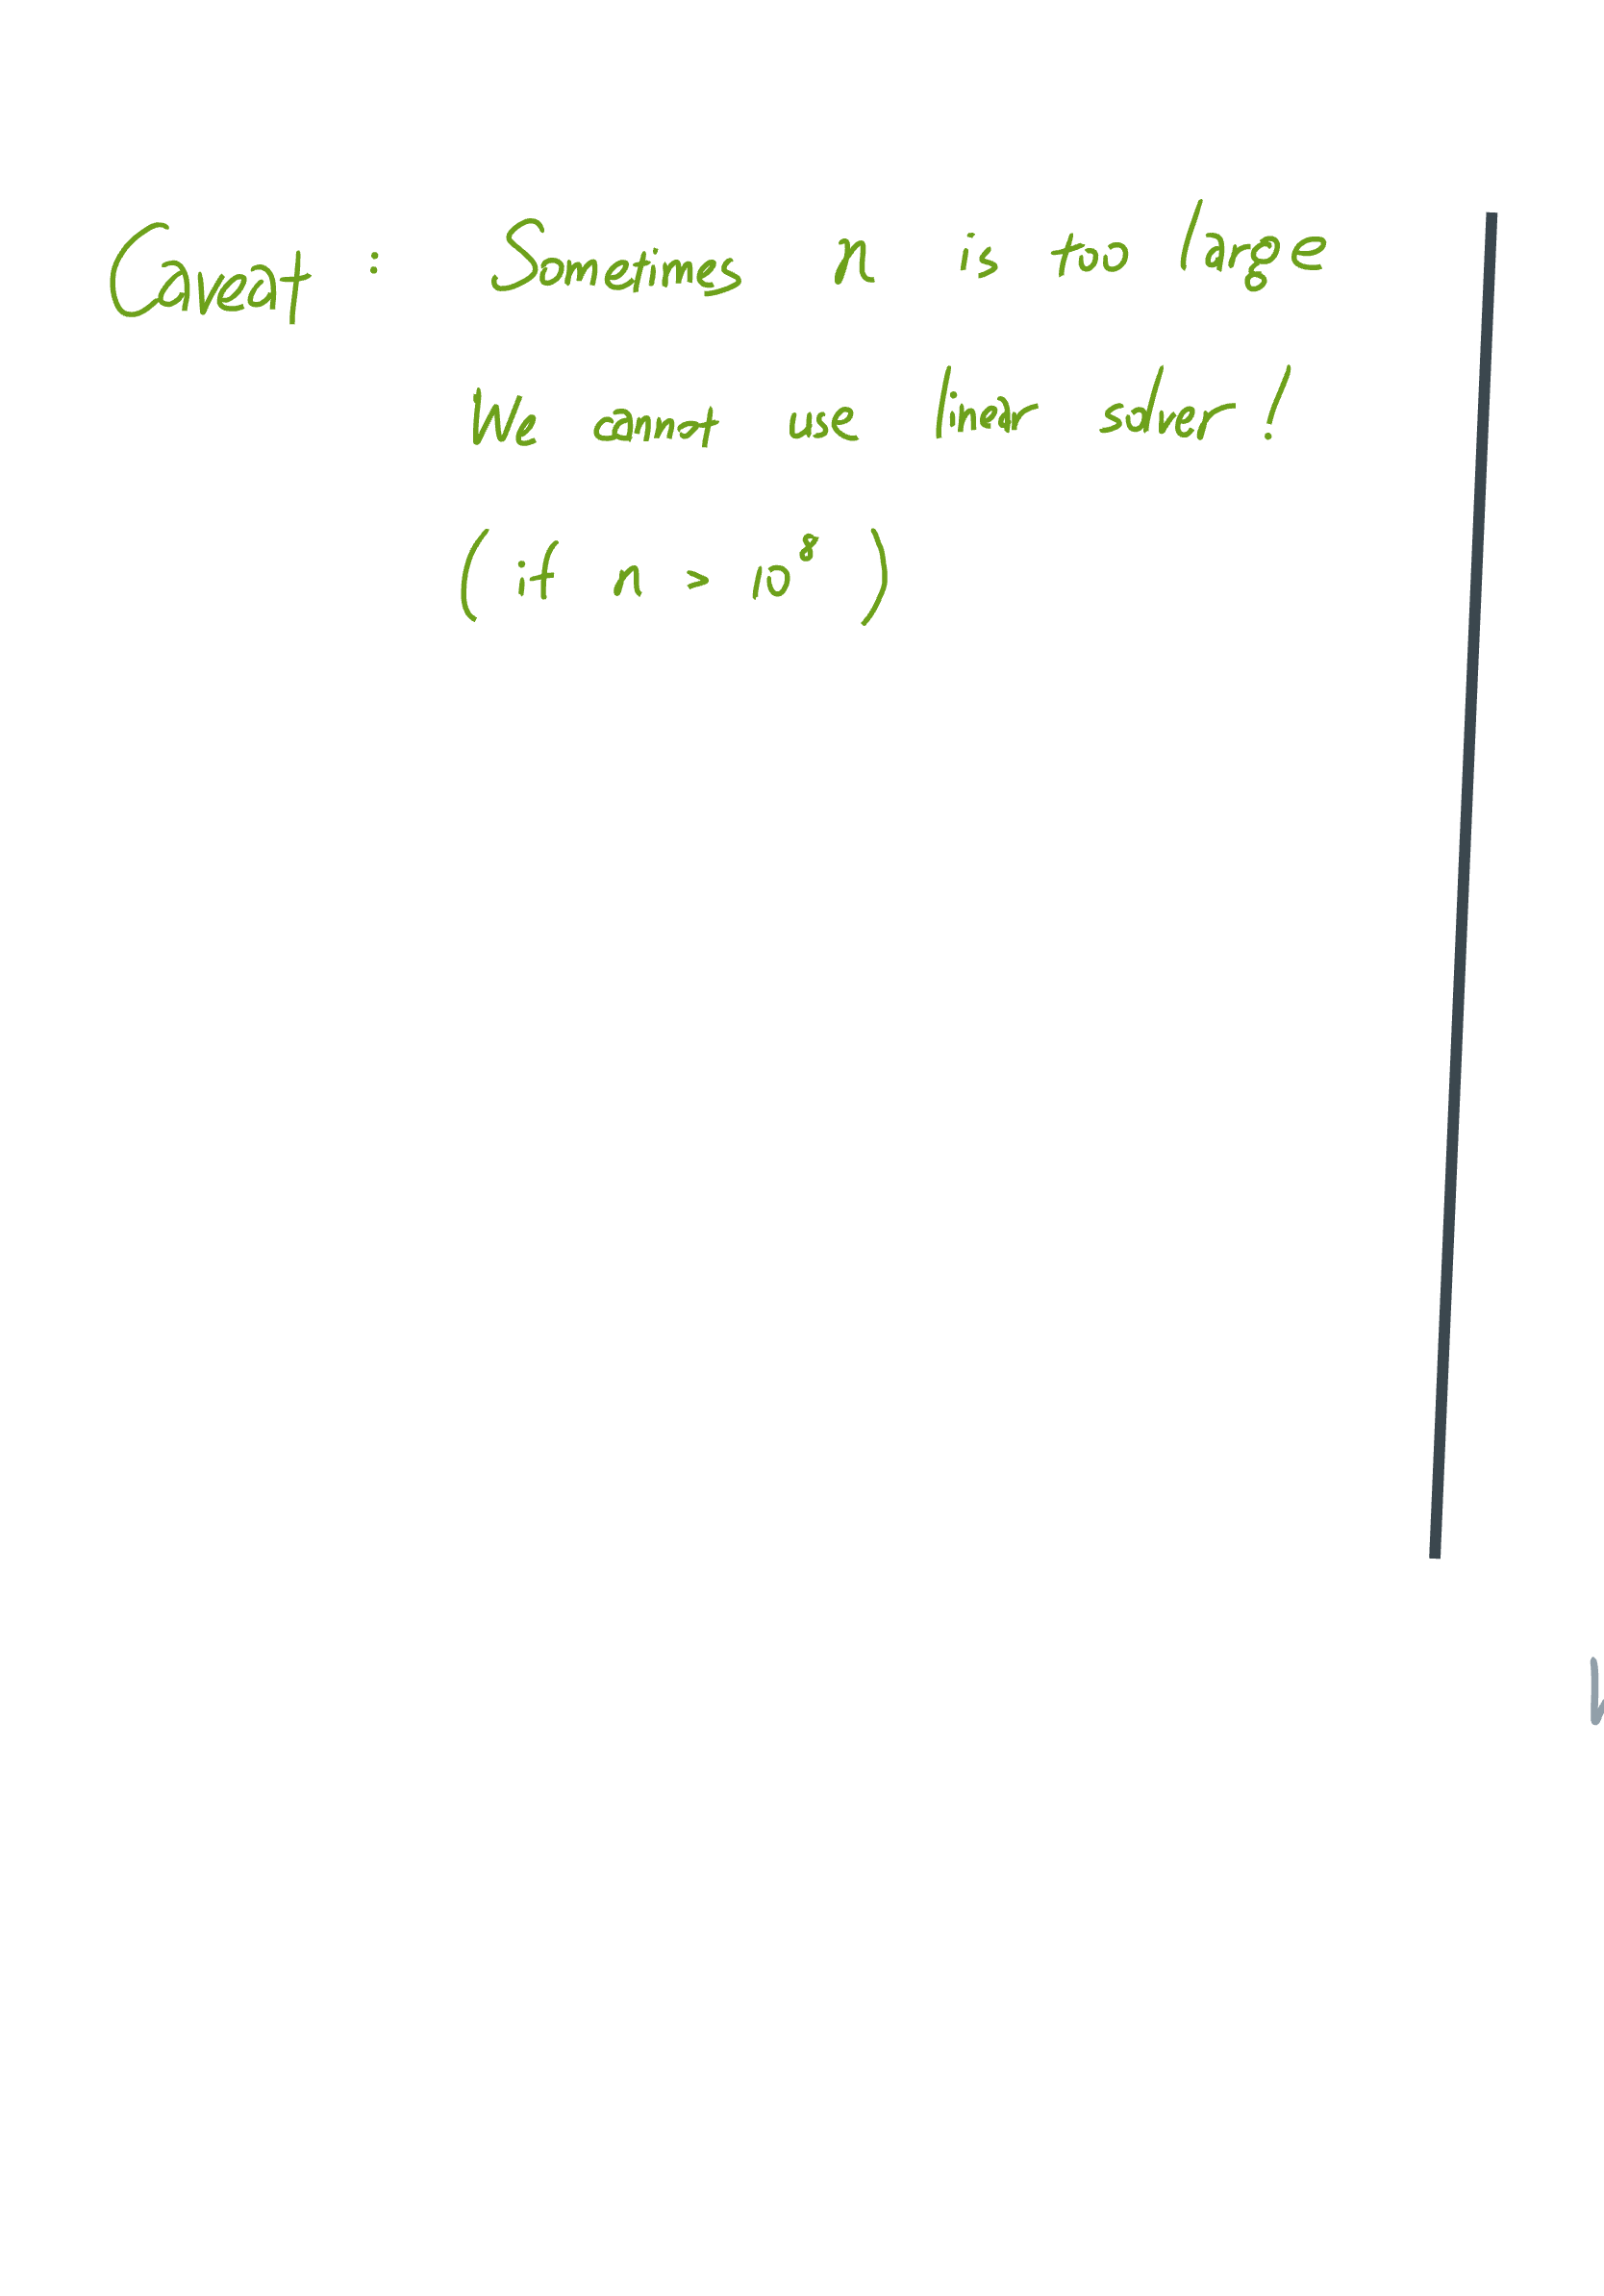 Caveat : Sometimes n is too large
We cannot use linear solver!
( if n > 10⁸ )